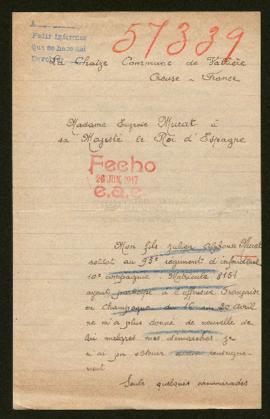 57339
Pedir informes
Que se hace así
La Chaize Commune de Vallière
Creuse - France
Madame Eugénie Murat à
sa Majesté le Roi d'Espagne
Fecho
26 JUN. 1917
e.a.c.
Mon fils Julien Alphonse Murat
soldat au 93e régiment d'infanterie
10e compagnie - Matricule 8151
ayant participé à l'offensive Française
en Champagne du 16 au 20 Avril
ne m'a plus donné de nouvelle de
lui malgré mes démarches je
n'ai pu obtenir aucun renseigne-
ment.
Seuls quelques camarades